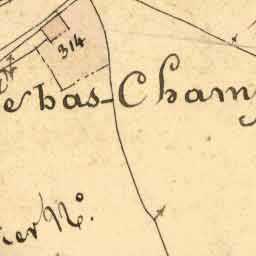 314
e bas-Cham
ier No.